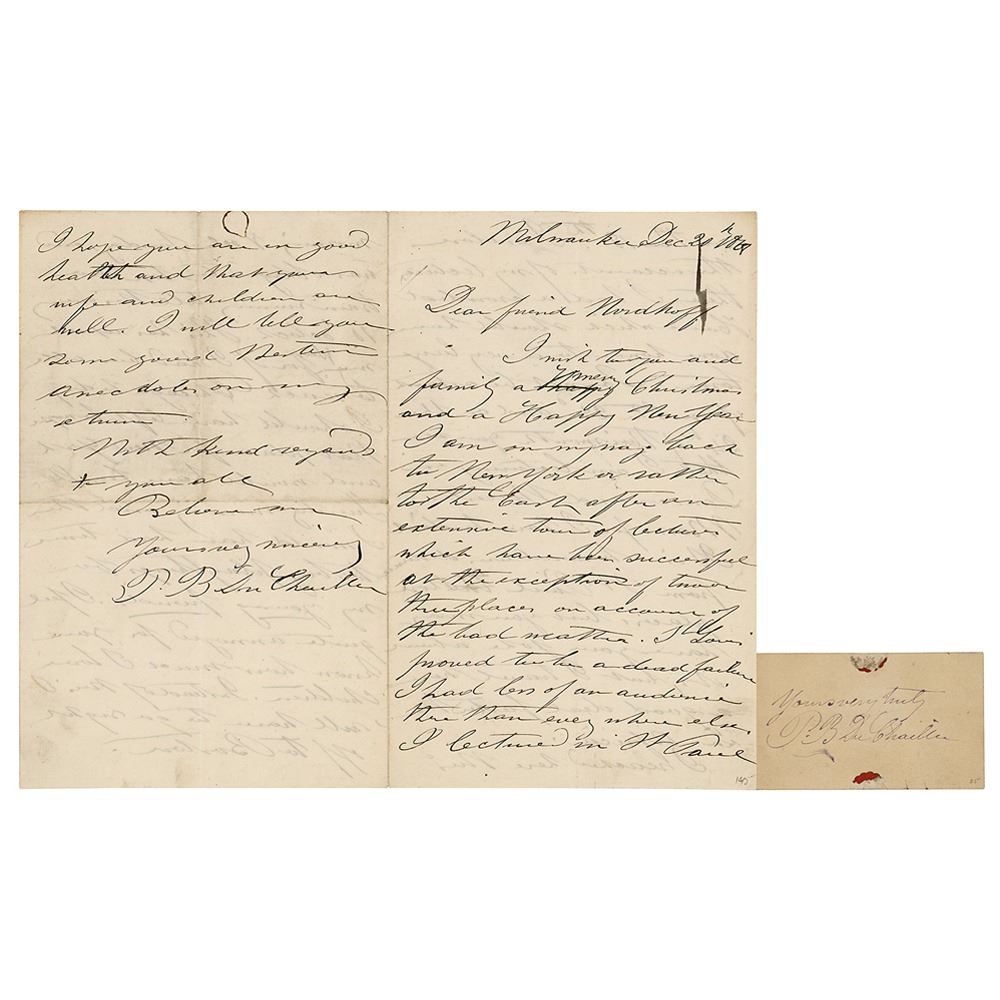 Milwaukee Dec 20th 1869
Dear friend Nordhoff
I wish to you and
family a happy merry Christmas
and a Happy New Year
I am on my way back
to New York or rather
to the East after an
extensive tour of lectures
which have been successful
at the exception of two or
three places on account of
the bad weather. St Louis
proved to be a dead failure
I had less of an audience
there than every where else.
I lectured in St Paul
145
I hope you are in good
health and that your
wife and children are
well. I will tell you
some good Western
anecdotes on my
return
With kind regards
to you all
Believe me
Yours very sincerely
P. B Du Chaillu
Yours very truly
P. B Du Chaillu